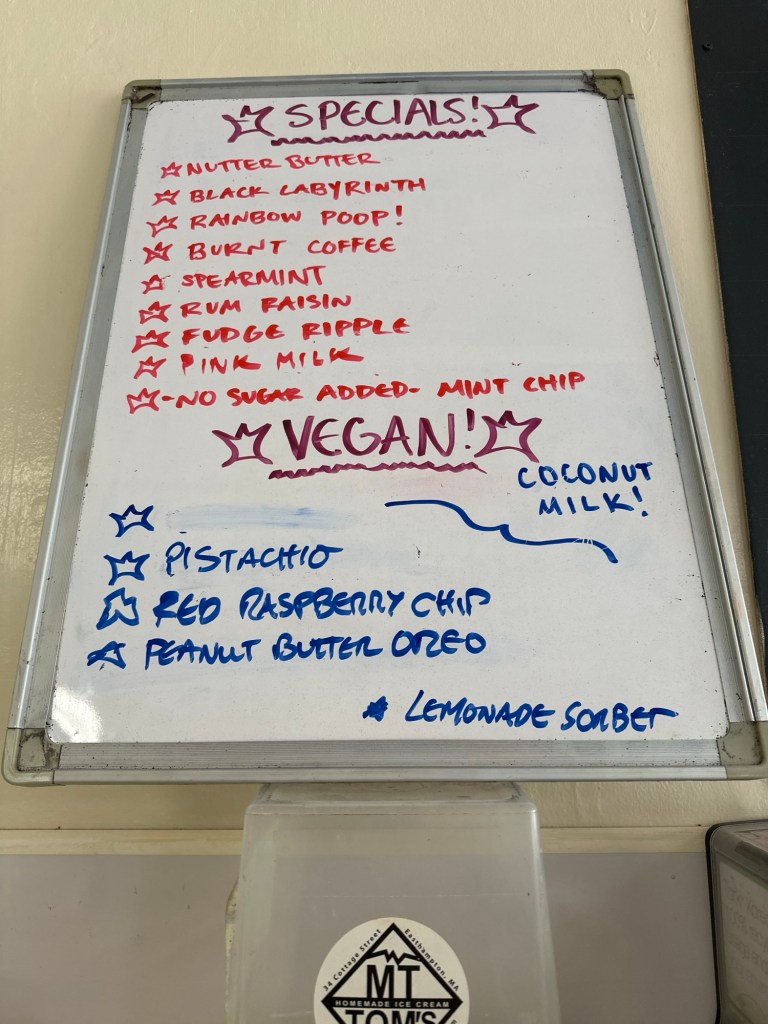 SPECIALS!
NUTTER BUTTER
BLACK LABYRINTH
RAINBOW POOP!
BURNT COFFEE
SPEARMINT
RUM RAISIN
FUDGE RIPPLE
PINK MILK
-NO SUGAR ADDED- MINT CHIP
VEGAN!
COCONUT
MILK!
PISTACHIO
RED RASPBERRY CHIP
PEANUT BUTTER OREO
LEMONADE SORBET
34 Cottage Street Easthampton, MA
MT
HOMEMADE ICE CREAM
TOM'S